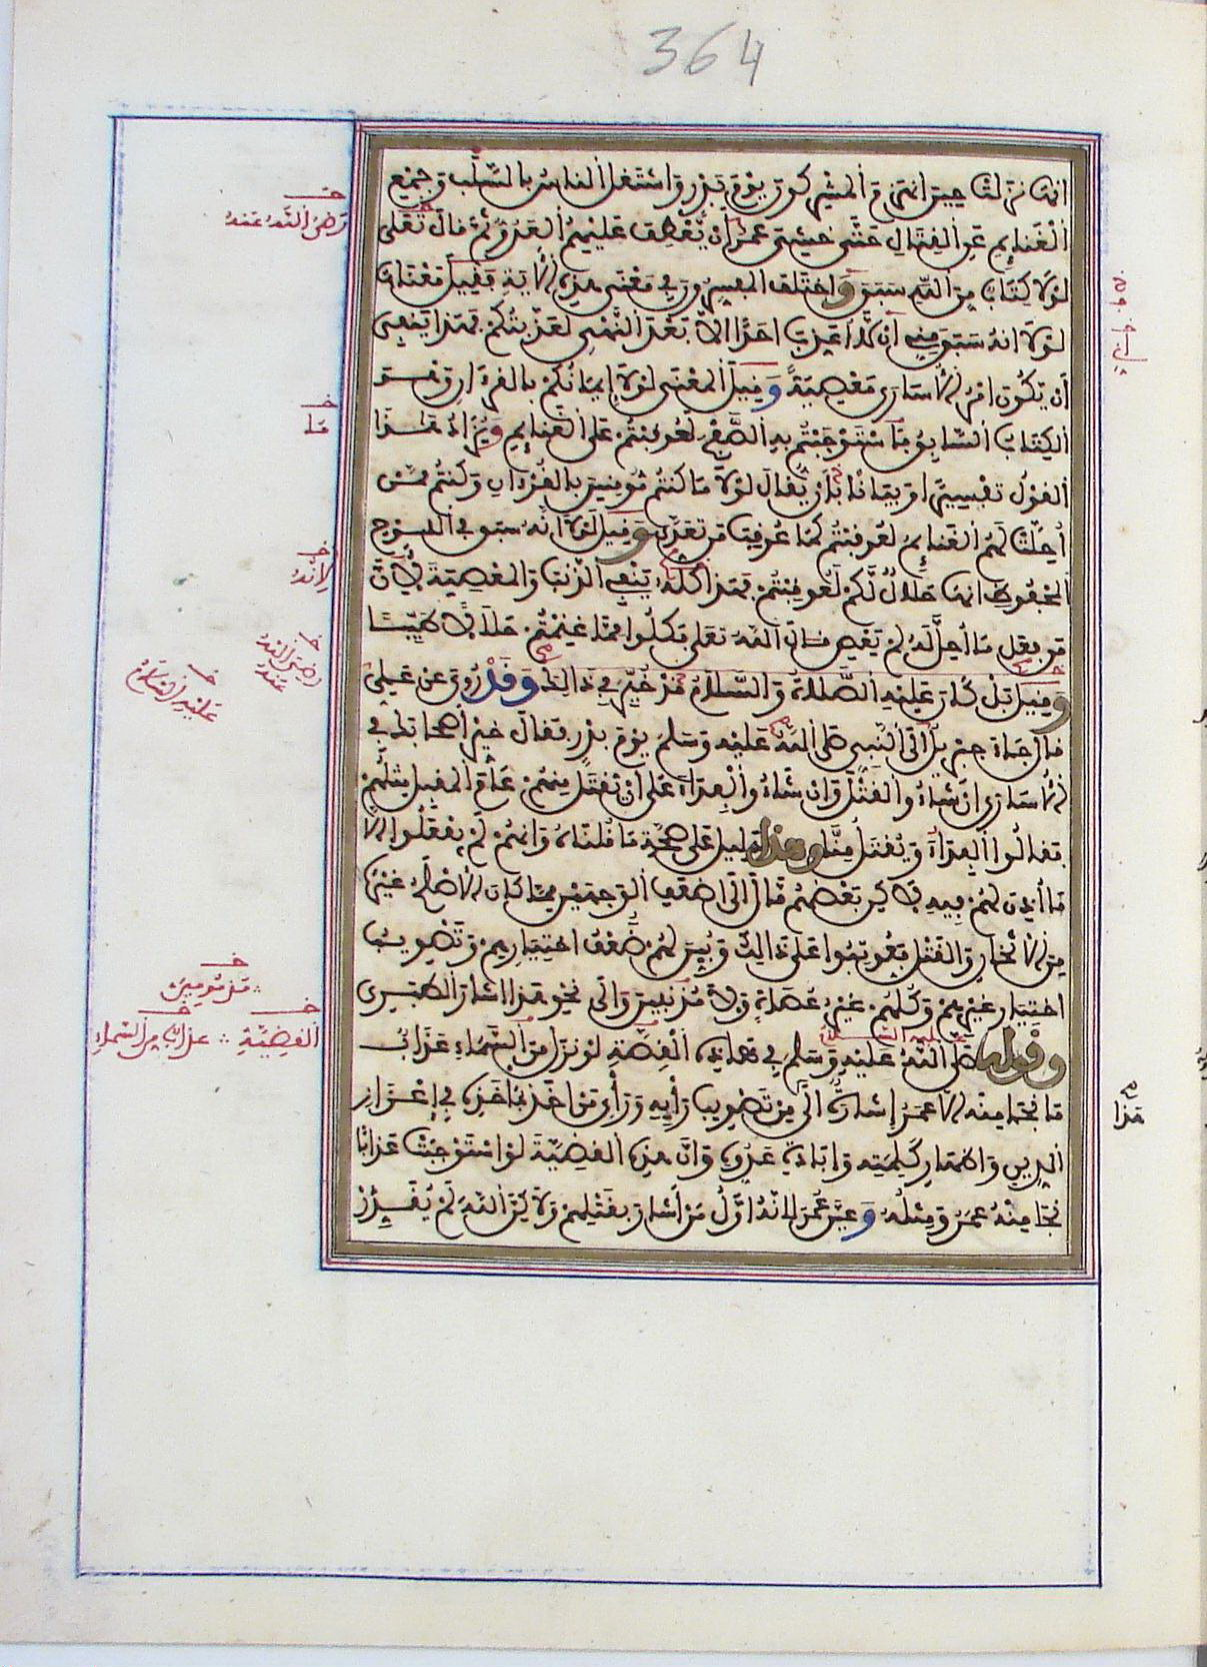 364
انها نزلت حين انهزم المشركون يوم بدر واشتغل الناس بالسلب وجمع
الغنايم عن القتال حتى خشي عمر ان يعطف عليهم العدو ثم قال تعلى
لولا كتاب من الله سبق واختلف المفسرون في معنى هذه الاية فقيل معناها
لولا انه سبق مني ان لا اعذب احدا الا بعد النهي لعذبتكم فهذا ينفي
ان يكون امر الاسارى معصية وقيل المعنى لولا ايمانكم بالقرءان وهو
الكتاب السابق فاستوجبتم به الصفح لعوقبتم على الغنايم ويزاد هذا
القول تفسيرا وبيانا بان يقال لولا ما كنتم مومنين بالقرءان وكنتم ممن
احلت لهم الغنايم لعوقبتم كما عوقب من تعدى وقيل لولا انه سبق في اللوح
المحفوظ انها حلال لكم لعوقبتم فهذا كله ينفي الذنب والمعصية لان
من فعل ما احل له لم يعص قال الله تعلى فكلوا مما غنمتم حلالا طيبا
وقيل بل كان عليه الصلاة والسلام قد خير في ذالك وقد روي عن علي
قال جاء جبريل الى النبي صلى الله عليه وسلم يوم بدر فقال خير اصحابك في
الاسارى ان شاءوا القتل وان شاءوا الفداء على ان يقتل منهم عام المقبل مثلهم
فقالوا الفداء ويقتل منا وهذا دليل على صحة ما قلناه وانهم لم يفعلوا الا
ما اذن لهم فيه لاكن بعضهم مال الى اضعف الوجهين مما كان الاصلح غيره
من الاثخان والقتل فعوتبوا على ذالك وبين لهم ضعف اختيارهم وتصويب
اختيار غيرهم وكلهم غير عصاة ولا مذنبين والى نحو هذا اشار الطبري
وقوله صلى الله عليه وسلم في هاذه القضية لو نزل من السماء عذاب
ما نجا منه الا عمر اشارة الى من تصويب رايه وراي من اخذ بماخذه في اعزاز
الدين واظهار كلمته وابادة عدوه وان هذه القضية لو استوجبت عذابا
نجا منه عمر ومثله وعين عمر لانه اول من اشار بقتلهم ولاكن الله لم يقدر
رضي الله عنه
ما
لانه
رضي الله عنه
عليه السلام
القضية
عذاب من السماء
هذا